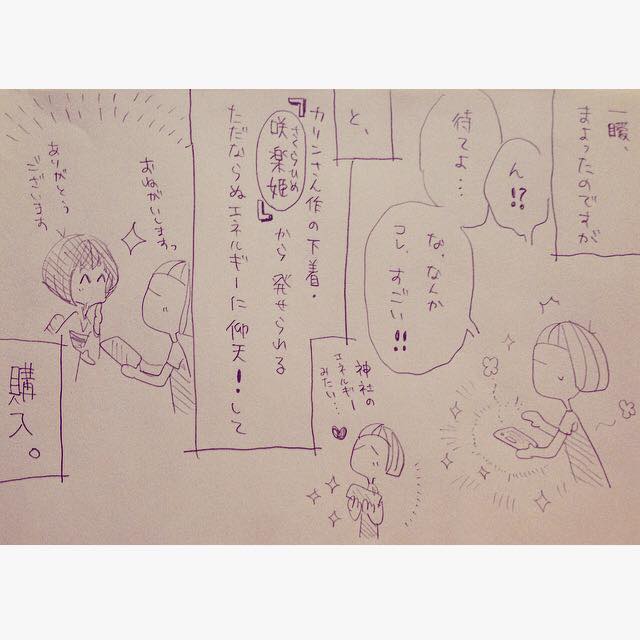 一瞬、
まよったのですが
ん!?
待てよ…
な、なんか
コレ、すごい!!
神社の
エネルギー
みたい…
と、
カリンさん作の下着・
『咲楽姫』から発せられる
さくらひめ
ただならぬエネルギーに仰天!して
おねがいしますっ
ありがとう
ございます
購入。